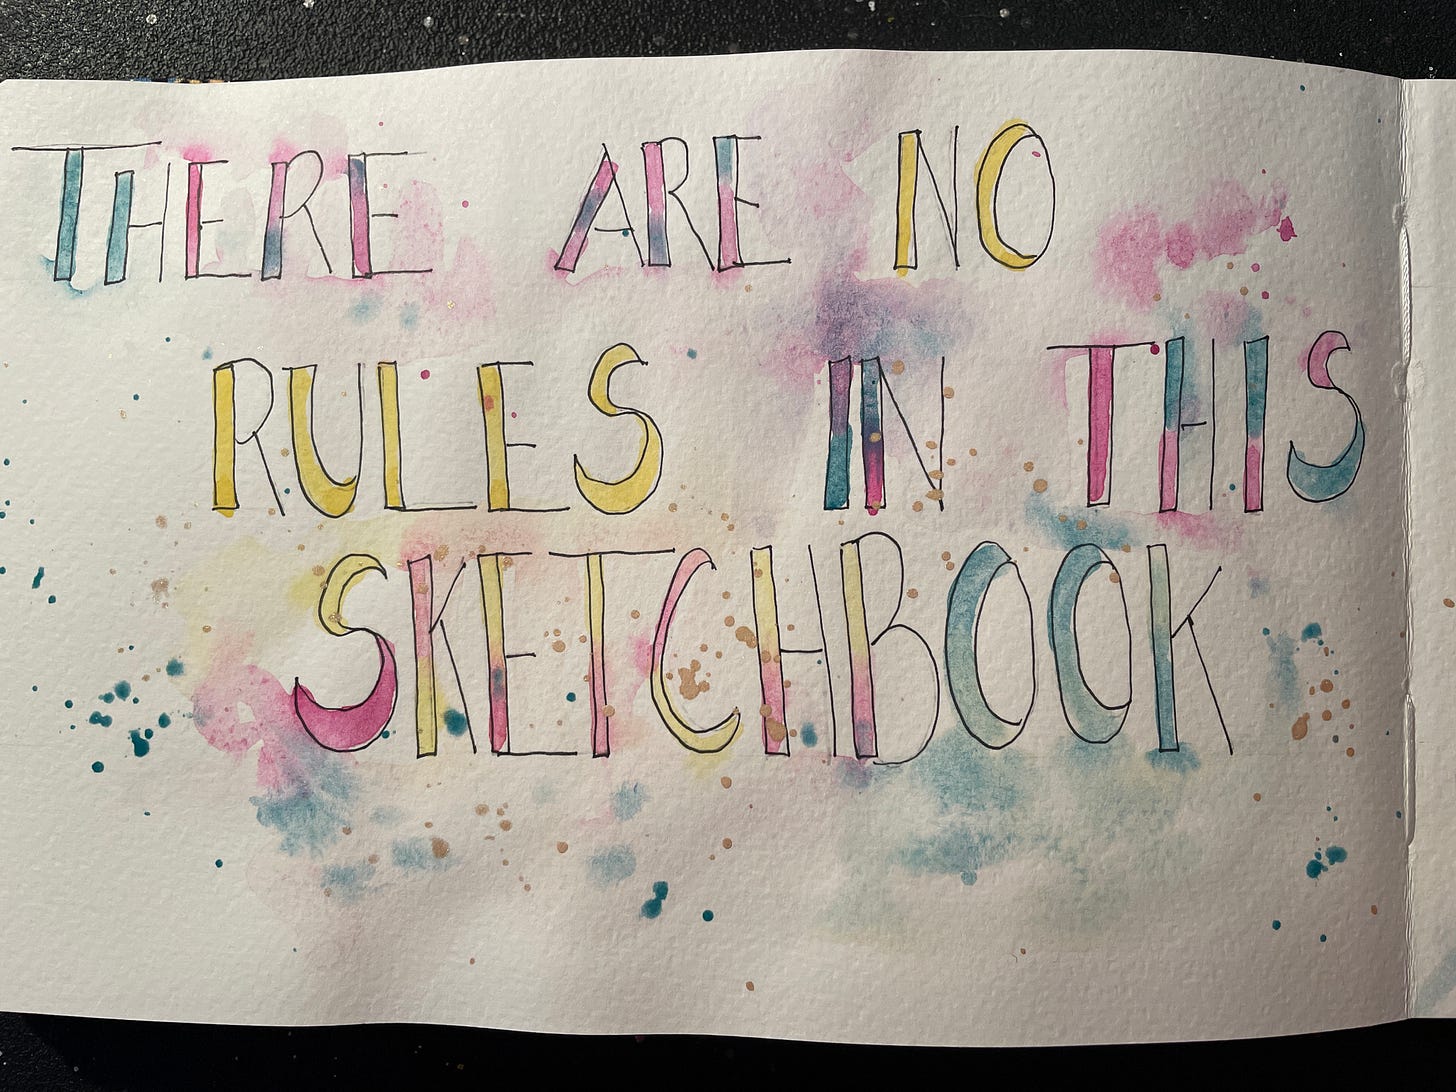 THERE ARE NO
RULES IN THIS
SKETCHBOOK